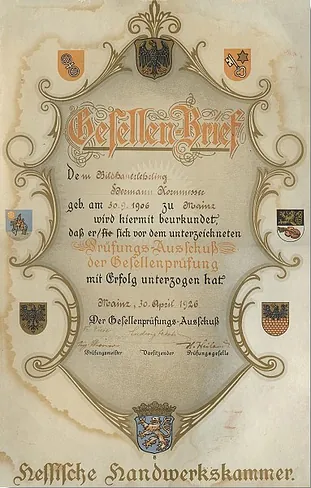 Gesellen-Brief
Dem Bildhauerlehrling
Hermann Kornmesser
geb. am 30.9.1906 zu Mainz
wird hiermit beurkundet,
daß er/sie sich vor dem unterzeichneten
Prüfungs-Ausschuß
der Gesellenprüfung
mit Erfolg unterzogen hat
Mainz, 30. April 1926
Der Gesellenprüfungs-Ausschuß
Prüfungsmeister Vorsitzender Prüfungsgeselle
Hessische Handwerkskammer.